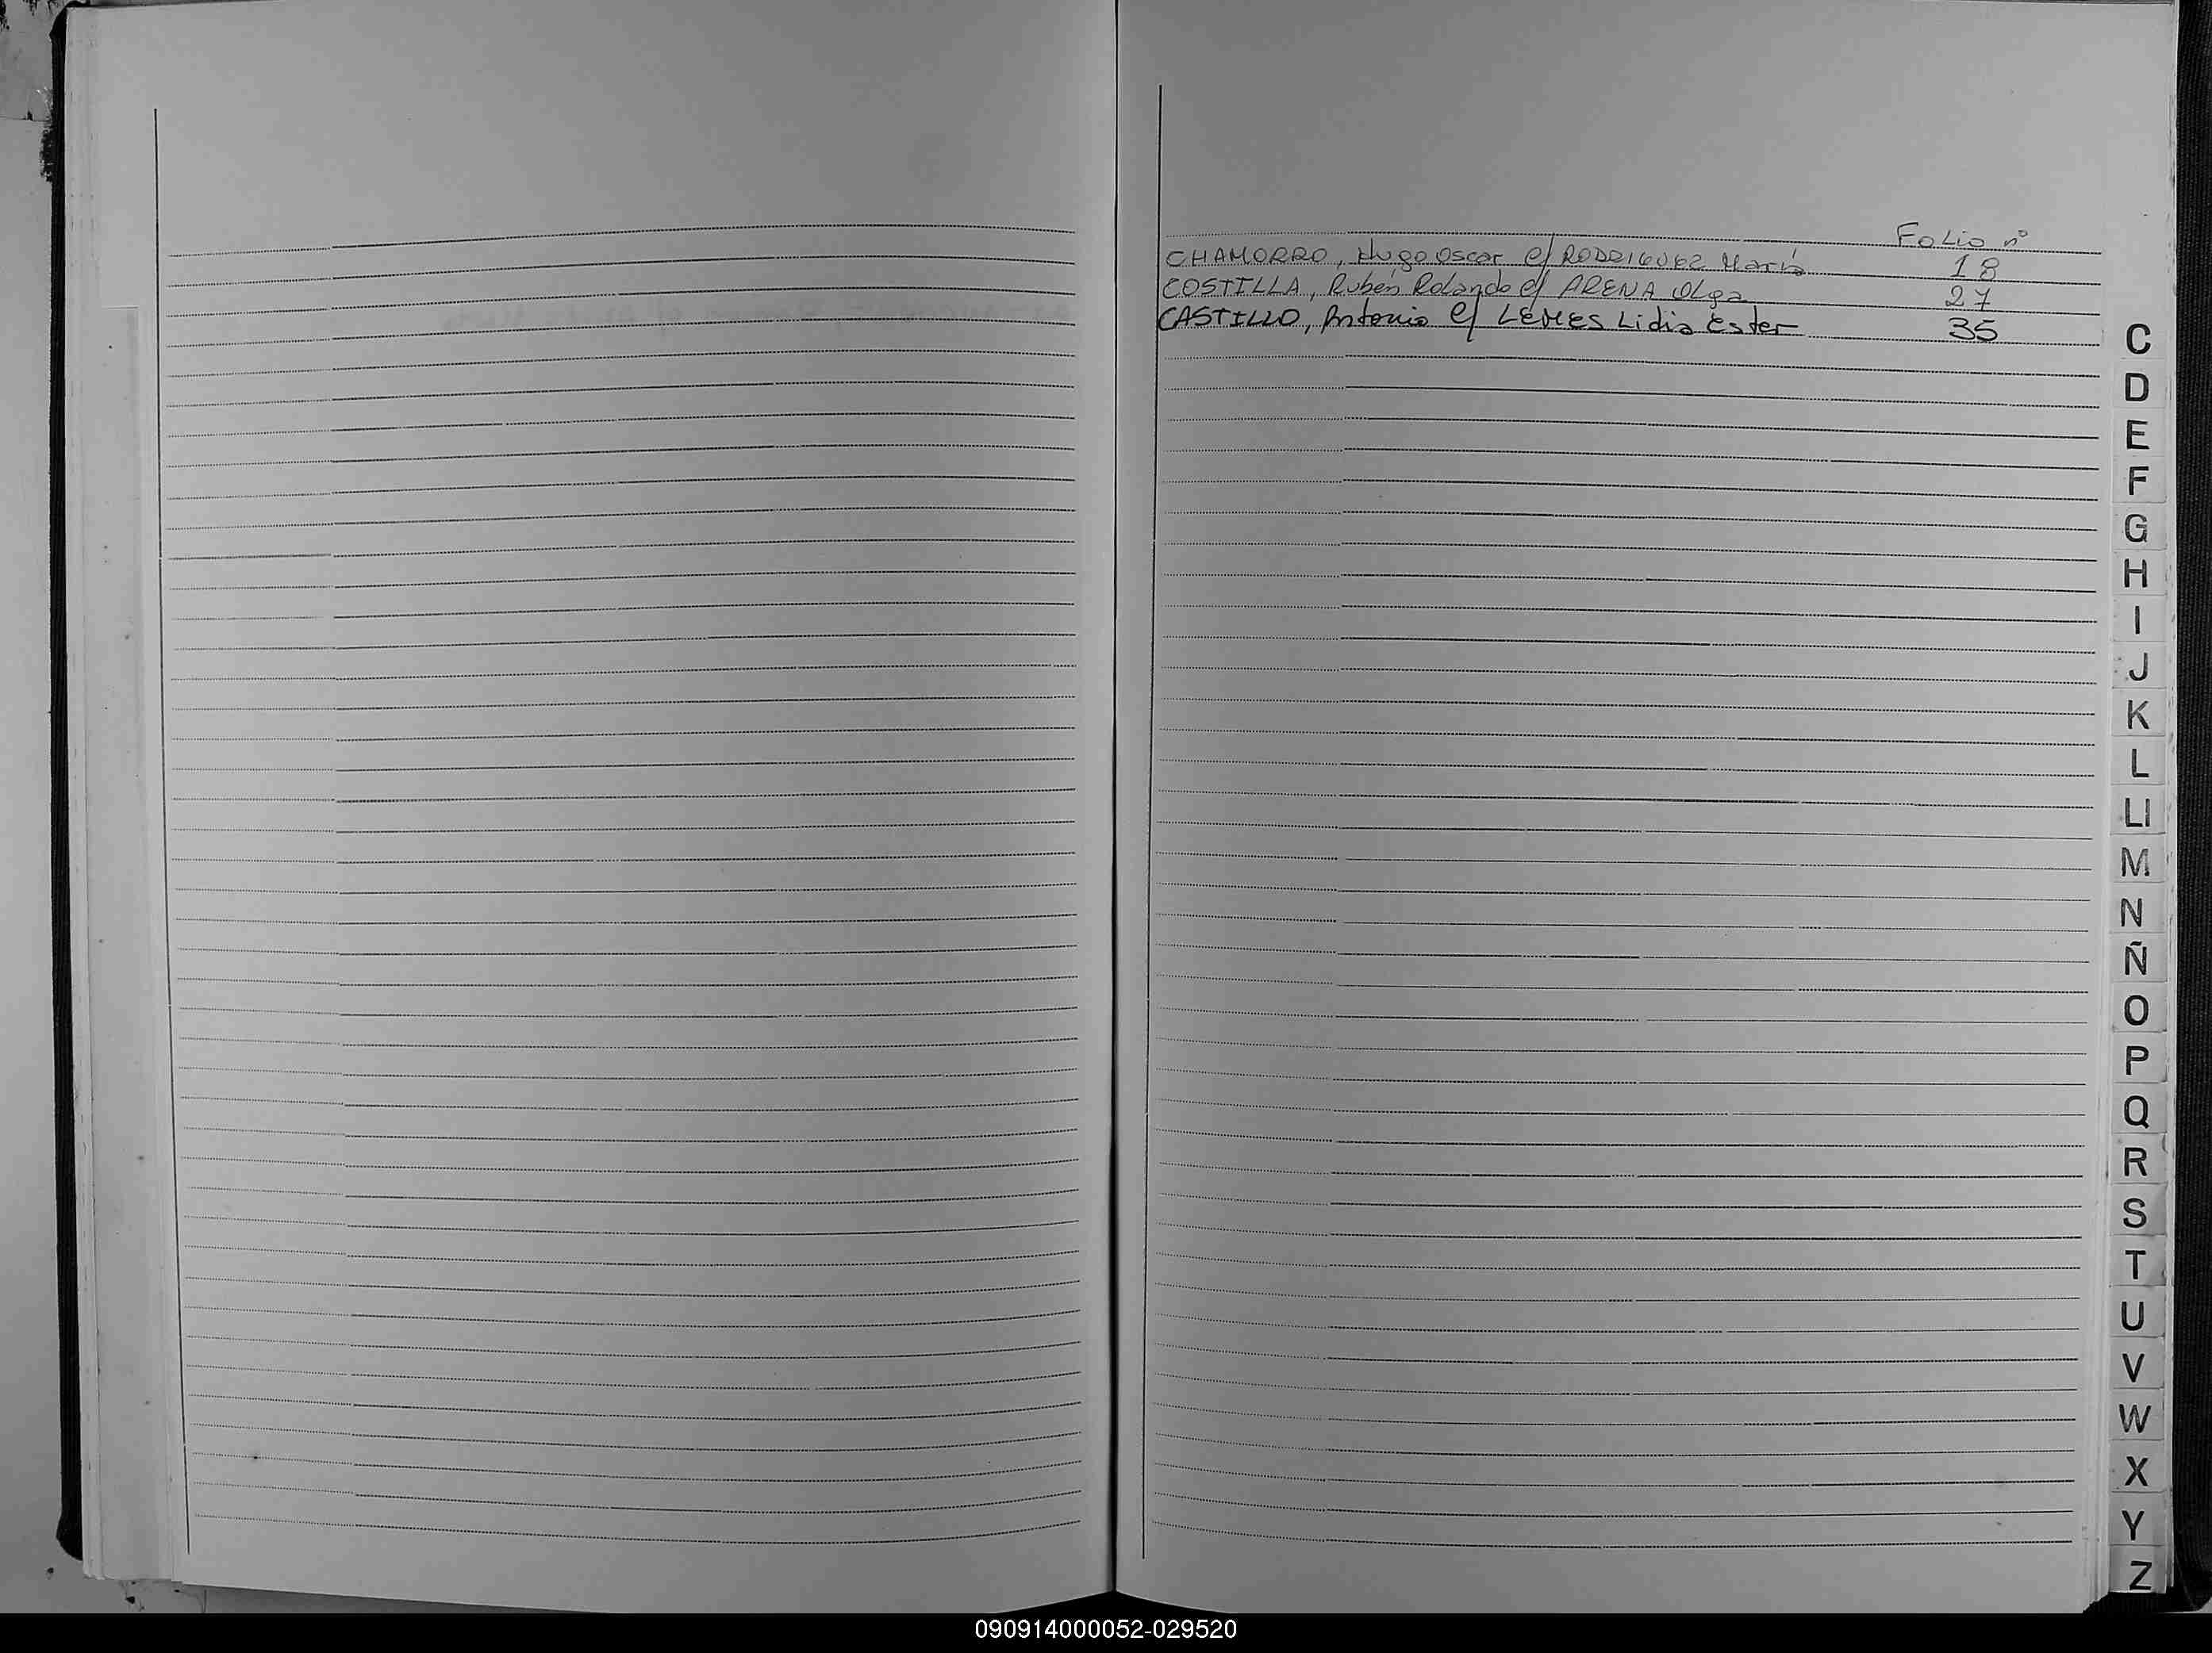 Folio nº
CHAMORRO, Hugo Oscar c/ RODRIGUEZ María 18
COSTILLA, Rubén Rolando c/ ARENA Olga 27
CASTILLO, Antonio c/ LEMES Lidia Ester 35
C
D
E
F
G
H
I
J
K
L
Ll
M
N
Ñ
O
P
Q
R
S
T
U
V
W
X
Y
Z
090914000052-029520